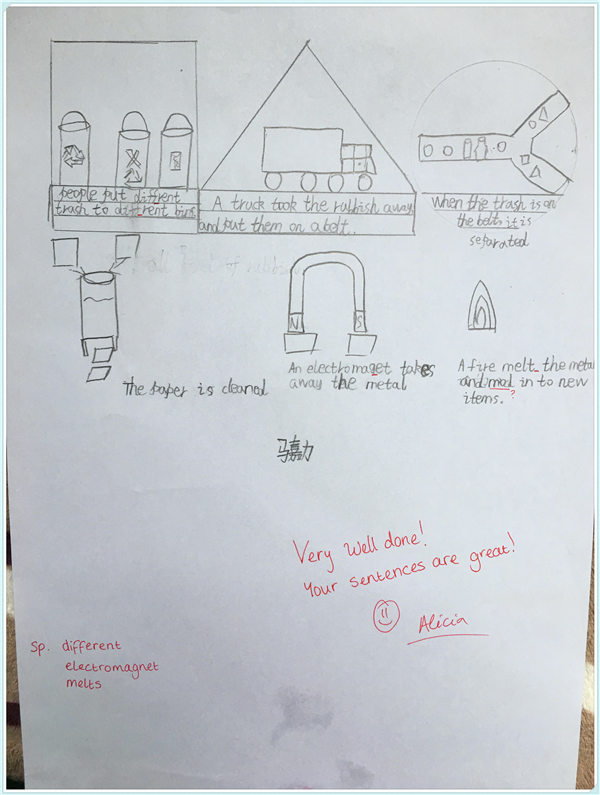 people put diffrent
trash to different bins
A truck took the rubbish away
and put them on a belt..
When the trash is on
the belt, it is
separated
all of rubbish
The paper is cleaned
N S
An electromaget takes
away the metal
A fire melt the metal
and mad in to new
items. ?
马嘉力
Very well done!
Your sentences are great!
Alicia
Sp. different
electromagnet
melts